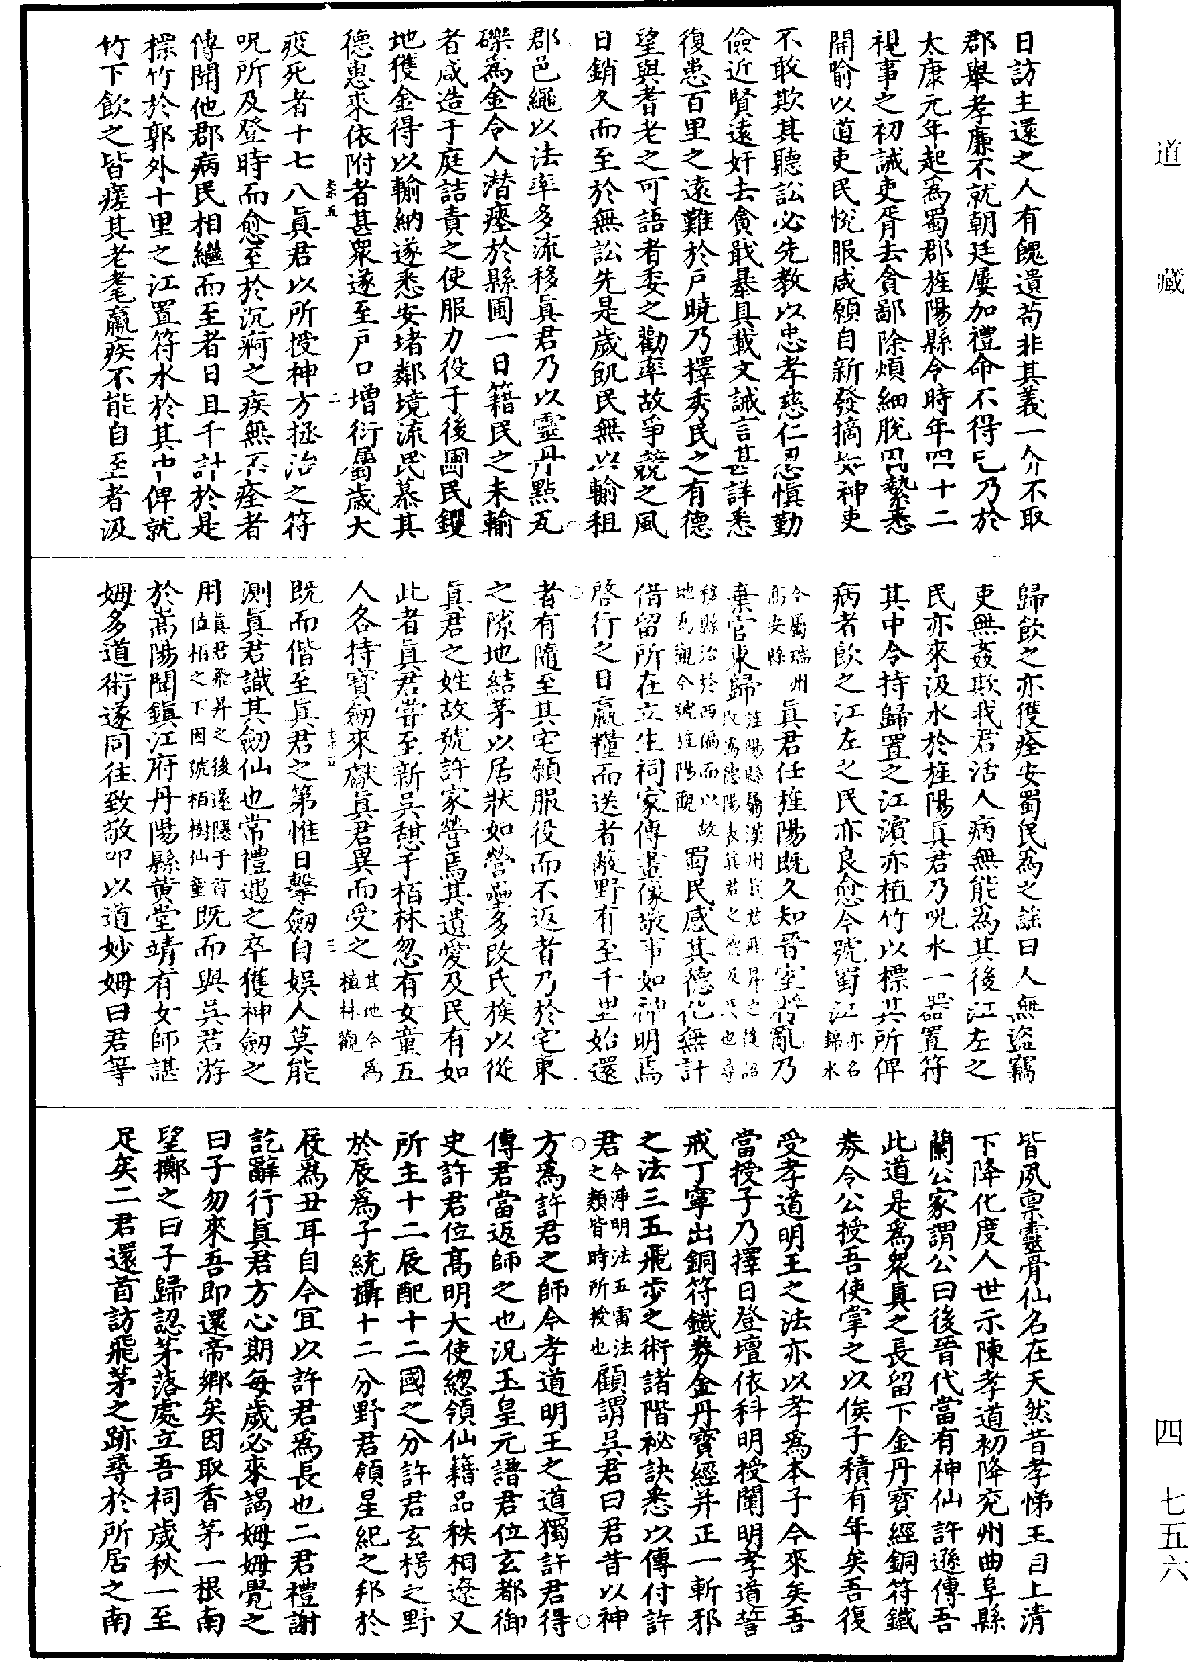 道藏
四 七五六
日訪主還之人有餽遺苟非其義一介不取
郡舉孝廉不就朝廷屢加禮命不得已乃於
太康元年起為蜀郡旌陽縣令時年四十二
視事之初誡吏胥去貪鄙除煩細脫囚縶悉
開喻以道吏民悅服咸願自新發摘如神吏
不敢欺其聽訟必先教以忠孝慈仁忍慎勤
儉近賢遠奸去貪戢暴具載文誡言甚詳悉
復患百里之遠難於戶曉乃擇秀民之有德
望與耆老之可語者委之勸率故爭競之風
日銷久而至於無訟先是歲飢民無以輸租
郡邑繩以法率多流移真君乃以靈丹點瓦
礫為金令人潛瘞於縣圃一日籍民之未輸
者咸造于庭詰責之使服力役于後圃民钁
地獲金得以輸納遂悉安堵鄰境流民慕其
德惠來依附者甚衆遂至戶口增衍屬歲大
二
疫死者十七八真君以所授神方拯治之符
呪所及登時而愈至於沉痾之疾無不痊者
傳聞他郡病民相繼而至者日且千計於是
標竹於郭外十里之江置符水於其中俾就
竹下飲之皆瘥其老耄羸疾不能自至者汲
歸飲之亦獲痊安蜀民為之謠曰人無盜竊
吏無姦欺我君活人病無能為其後江左之
民亦來汲水於旌陽真君乃呪水一器置符
其中令持歸置之江濱亦植竹以標其所俾
病者飲之江左之民亦良愈今號蜀江亦名錦水
今屬瑞州高安縣真君任旌陽既久知晉室將亂乃
棄官東歸旌陽縣屬漢州真君飛昇之後詔改為德陽表真君之德及民也尋
移縣治於西偏而以故地為觀今號旌陽觀蜀民感其德化無計
借留所在立生祠家傳畫像敬事如神明焉
啓行之日羸糧而送者蔽野有至千里始還
者有隨至其宅願服役而不返者乃於宅東
之隙地結茅以居狀如營壘多改氏族以從
真君之姓故號許家營焉其遺愛及民有如
此者真君嘗至新吳憩于栢林忽有女童五
人各持寶劒來獻真君異而受之其地今為植林觀
三
既而偕至真君之第惟日擊劒自娛人莫能
測真君識其劒仙也常禮遇之卒獲神劒之
用真君飛昇之後還隱于首植栢之下因號栢樹仙童既而與吳君游
於嵩陽聞鎮江府丹陽縣黃堂靖有女師諶
姆多道術遂同往致敬叩以道妙姆曰君等
皆夙禀靈骨仙名在天然昔孝悌王自上清
下降化度人世示陳孝道初降兖州曲阜縣
蘭公家謂公曰後晉代當有神仙許遜傳吾
此道是為衆真之長留下金丹寶經銅符鐵
券令公授吾使掌之以俟子積有年矣吾復
受孝道明王之法亦以孝為本子今來矣吾
當授子乃擇日登壇依科明授闡明孝道誓
戒丁寧出銅符鐵券金丹寶經并正一斬邪
之法三五飛步之術諸階祕訣悉以傳付許
君今淨明法五雷法之類皆時所授也顧謂吳君曰君昔以神
方為許君之師今孝道明王之道獨許君得
傳君當返師之也況玉皇元譜君位玄都御
史許君位高明大使總領仙籍品秩相遼又
所主十二辰配十二國之分許君玄枵之野
於辰為子統攝十二分野君領星紀之邦於
辰為丑耳自今宜以許君為長也二君禮謝
訖辭行真君方心期每歲必來謁姆姆覺之
曰子勿來吾即還帝鄉矣因取香茅一根南
望擲之曰子歸認茅落處立吾祠歲秋一至
足矣二君還首訪飛茅之跡尋於所居之南